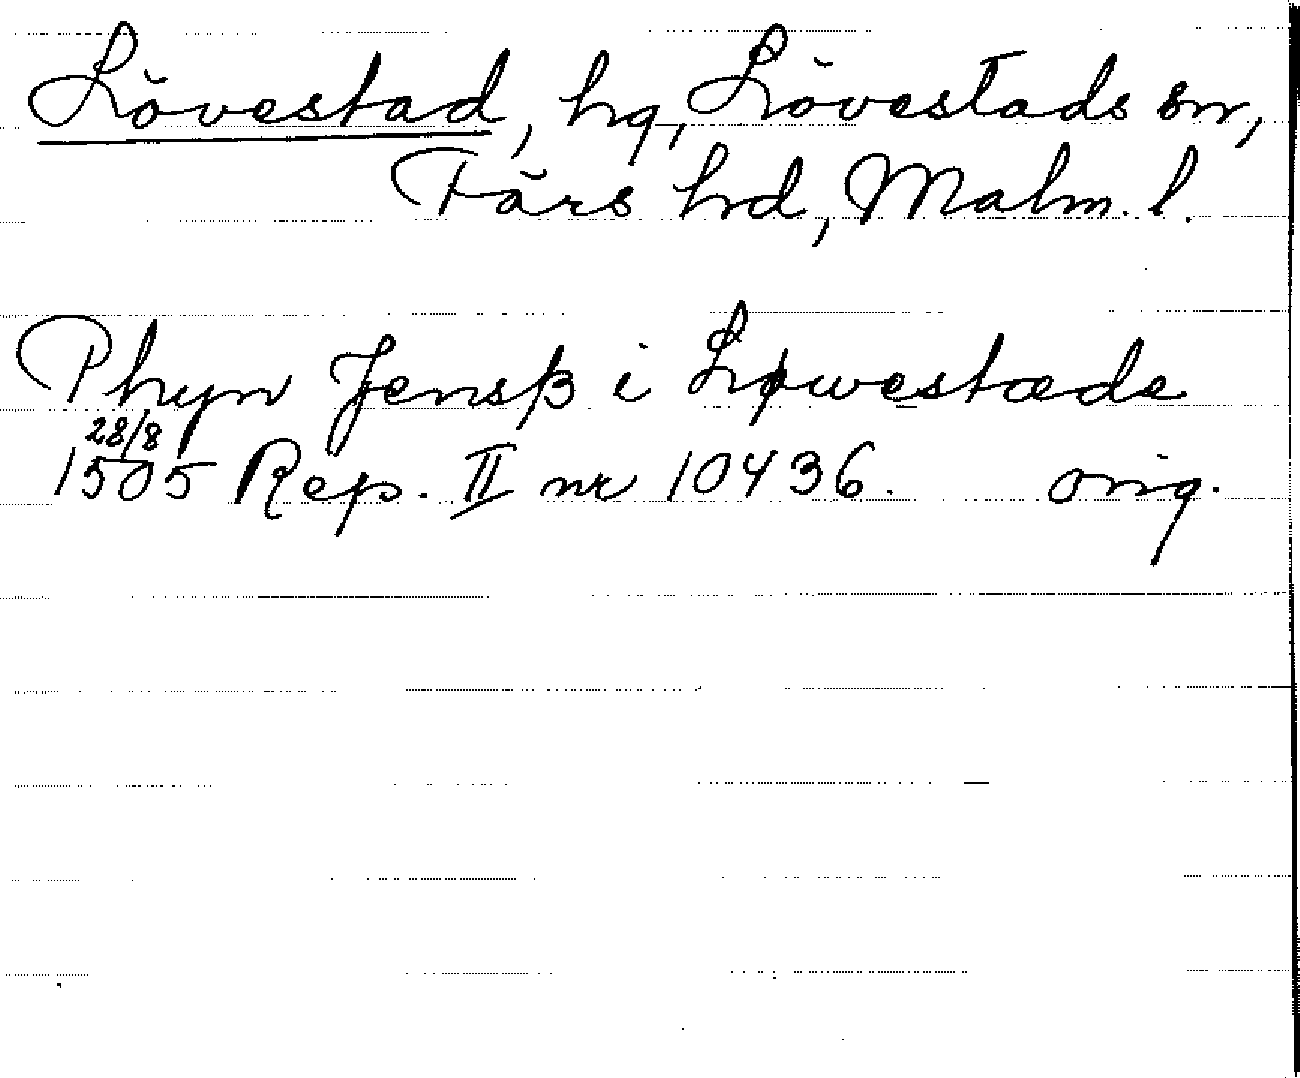 Lövestad, hg, Lövestads sn,
Färs hd, Malm. l.
Phyn Jensß i Løwestæde
28/8
1505 Rep. II nr 10436. orig.